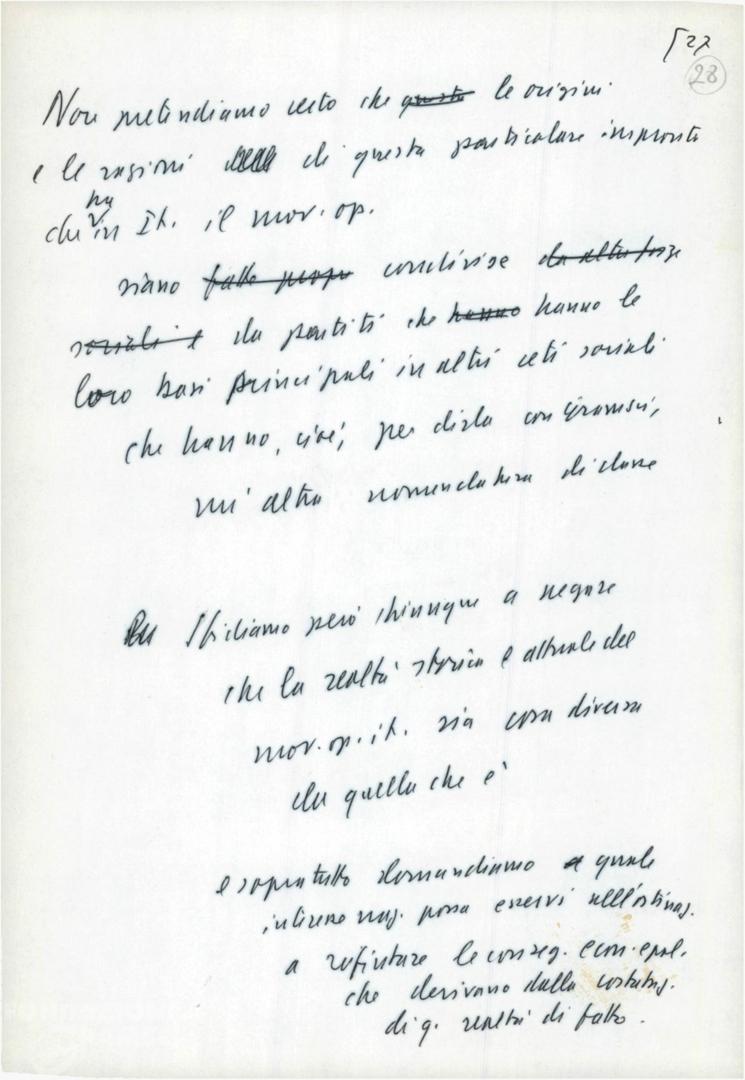 27
28
Non pretendiamo certo che questa le origini
e le ragioni di questa particolare impronta
ha
che in It. il mov. op.
siano fatte proprie condivise da altre forze
sociali e da partiti che hanno hanno le
loro basi principali in altri ceti sociali
che hanno, cioè, per dirla con Gramsci,
un'altra nomenclatura di classe
Sfidiamo però chiunque a negare
che la realtà storica e attuale del
mov. op. it. sia cosa diversa
da quella che è
e sopratutto domandiamo quale
interesse naz. possa esservi nell'ostinaz.
a rifiutare le conseg. econ. e pol.
che derivano dalla costataz.
di q. realtà di fatto.